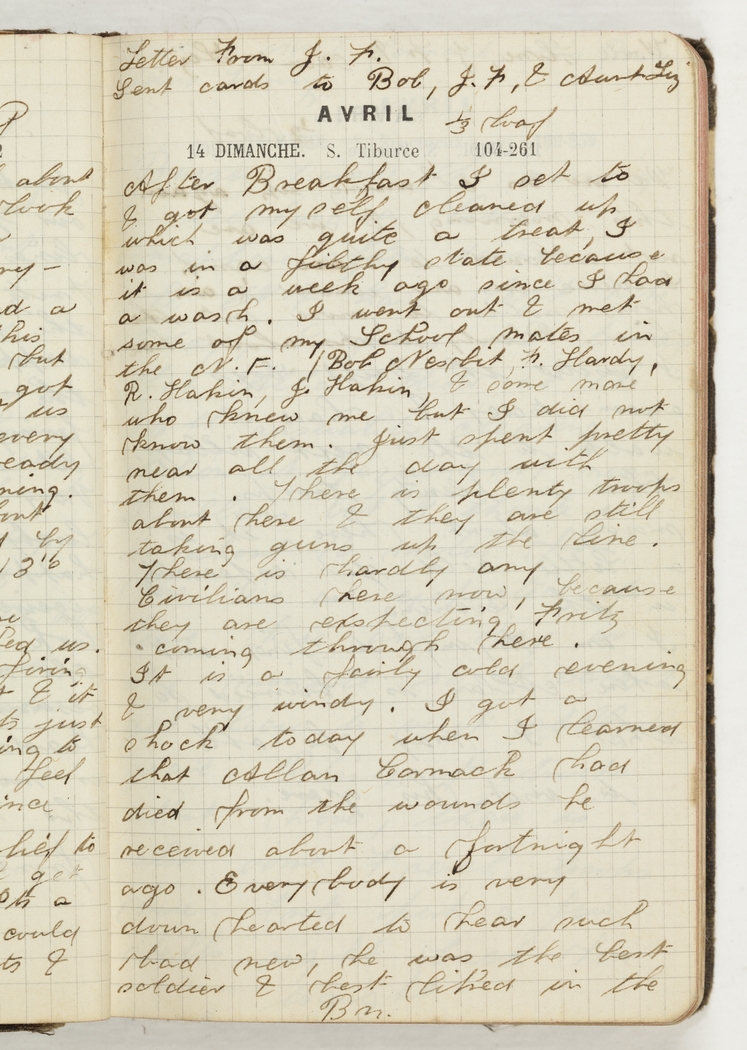 Letter From J. F.
Sent cards to Bob, J. F, & Aunt Liz
AVRIL
1/3 loaf
14 DIMANCHE. S. Tiburce 104-261
After Breakfast I set to
& got myself cleaned up
which was quite a treat, I
was in a filthy state because
it is a week ago since I had
a wash. I went out & met
some of my School mates in
the N. F. (Bob Nesbit, F. Hardy,
R. Hakin, J Hakin, & some more
who knew me but I did not
know them. Just spent pretty
near all the day with
them. There is plenty troops
about here & they are still
taking guns up the line.
There is hardly any
Civilians here now, because
they are exspecting Fritz
coming through here.
It is a fairly cold evening
& very windy. I got a
shock today when I learned
that Allan Cormack had
died from the wounds he
received about a fortnight
ago. Everybody is very
down hearted to hear such
bad new, he was the best
soldier & best liked in the
Bn.
about
look
ny-
d a
his
but
got
us
every
eady
ning.
bout
by
us.
firin
& it
just
ing to
feel
ince
to
get
a
could
ts &